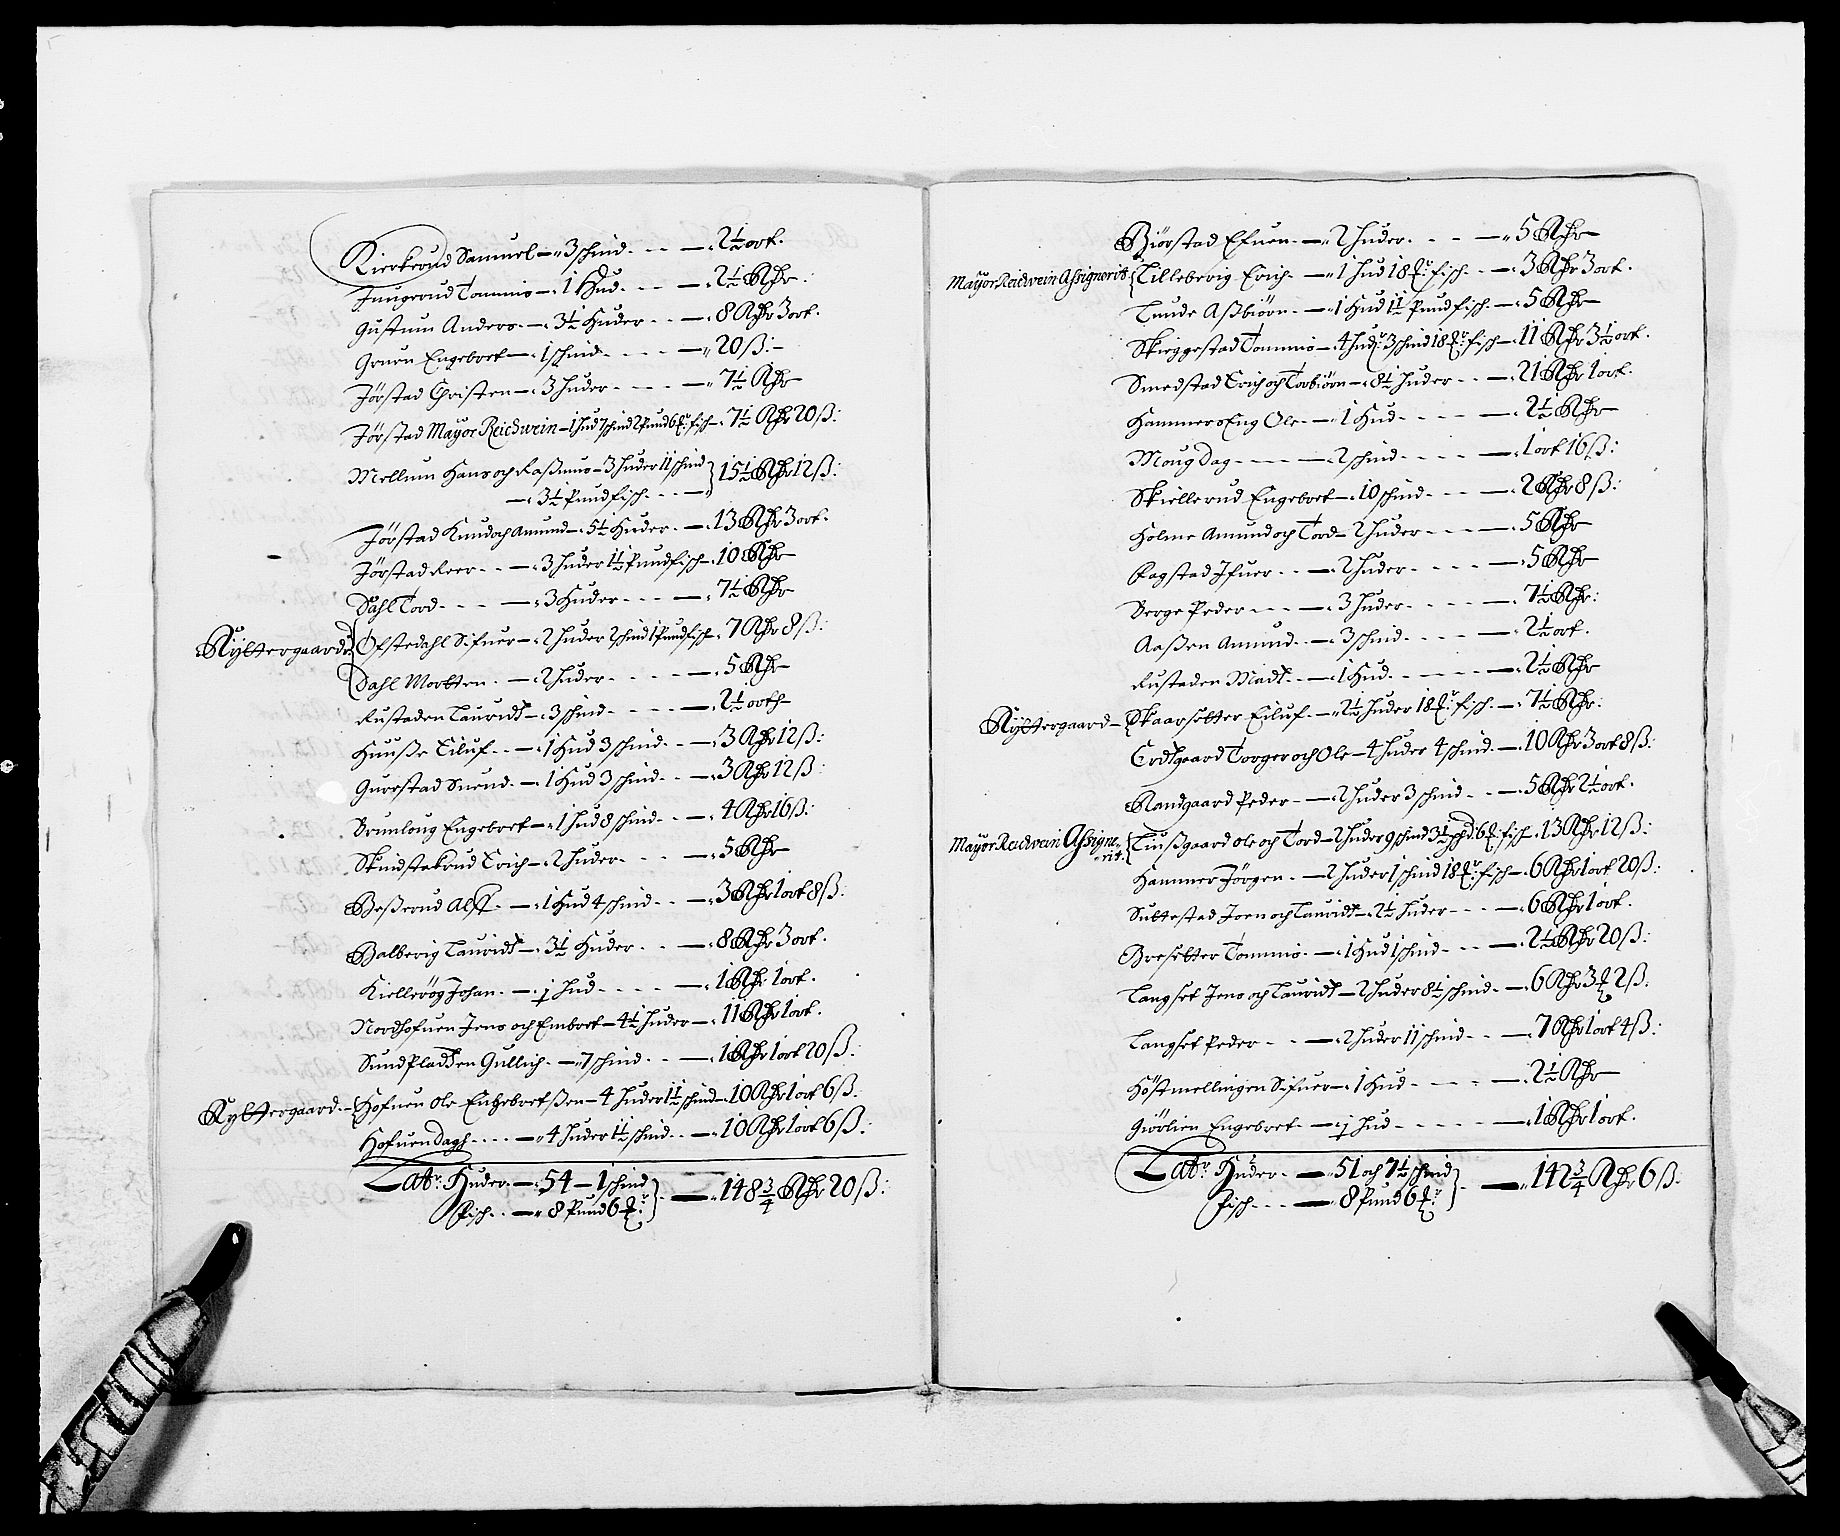 Kierkerud Samuel — 3 schind - - — 2½ ort.
Jungerud Tommis — 1 Hud - - - — 2½ Rdr.
Gustum Anders — 3½ Huder - - — 8 Rdr 3 ort.
Gruen Engebret — 1 schind - - - - — 20 ß:
Jörstad Christen — 3 huder - - - - — 7½ Rdr
Jörstad Mayor Reichwein — 1 Hud 7 schind 2 Pund 6 fisch — 7½ Rdr 20 ß:
Mellum Hans och Raßmus — 3 huder 11 schind } 15½ Rdr 12 ß:
— 3½ Pund fisch - - —
Jörstad Knud och Amund — 5½ Huder — 13 Rdr 3 ort.
Jörstad Peer - - — 3 huder 1½ Pund fisch — 10 Rdr
Dahl Tord - - - — 3 Huder - - - — 7½ Rdr
Ryttergaarde { Ofstedahl Sifuer — 2 huder 2 schind 1 Pund fisch — 7 Rdr 8 ß:
Dahl Mortten — 2 huder - - - - — 5 Rdr
Rustaden Lauridt — 3 schind - - - - — 2½ orth
Huuße Eiluf - - — 1 Hud 3 schind - - — 3 Rdr 12 ß:
Gurestad Suend — 1 Hud 3 schind - - — 3 Rdr 12 ß:
Brunloug Engebret — 1 Hud 8 schind - - — 4 Rdr 16 ß:
Skindstakrud Erich — 2 huder - - - — 5 Rdr
Beßerud Alff - — 1 Hud 4 schind - - — 3 Rdr 1 ort 8 ß:
Balberig Lauridt — 3½ Huder - - — 8 Rdr 3 ort.
Kiellerög Johan — j hud - - - - — 1 Rdr 1 ort.
Nordhofuen Jens och Embret — 4½ huder — 11 Rdr 1 ort.
Sund Pladtzen Gullich — 7 schind - - — 1 Rdr 1 ort 20 ß:
Ryttergaard — Hofuen Ole Engebretßen — 4 huder 1½ schind — 10 Rdr 1 ort 6 ß.
Hofuen Dagh - - - — 4 huder 1½ schind - — 10 Rdr 1 ort 6 ß:
Latr: Huder — 54 — 1 schind } — 148¾ Rdr 20 ß:
Fisch - — 8 Pund 6
Biörstad Efuen — 2 huder - - - — 5 Rdr
Mayor Reichwein Assignerit { Lilleberig Erich — 1 hud 18 fisch - — 3 Rdr 3 ort.
Lunde Aßbiörn — 1 Hud 1½ Pund fisch — 5 Rdr
Skieggestad Tommis — 4 hud 3 schind 18 fisch — 11 Rdr 3½ ort.
Smedstad Erich och Torbiörn — 8½ huder - - — 21 Rdr 1 ort.
Hammers Eng Ole — 1 Hud - - - — 2½ Rdr
Moug Dag - - — 2 schind - - - - — 1 ort 16 ß:
Skiellerud Engebret — 10 schind - - - — 2 Rdr 8 ß:
Holme Amund och Tord — 2 huder - - - — 5 Rdr
Fagstad Ifuer - - — 2 huder - - - - — 5 Rdr
Berge Peder - - - — 3 huder - - - - — 7½ Rdr:
Aaßen Amund - - — 3 schind - - - - — 2½ ort.
Rustaden Madt - - — 1 Hud - - - - - — 2½ Rdr
Ryttergaard — Skaarsetter Eiluf — 2½ huder 18 fisch — 7½ Rdr:
Erdtgaard Torger och Ole — 4 huder 4 schind — 10 Rdr 3 ort 8 ß:
Randgaard Peder — 2 huder 3 schind - - — 5 Rdr 2½ ort.
Mayor Reichwein Assigne-
rit. { Luußgaard Ole och Tord — 2 huder 9 schind 3½ pd 6 fisch — 13 Rdr 12 ß:
Hammer Jörgen — 2 huder 1 schind 18 fisch — 6 Rdr 1 ort 20 ß:
Suttestad Joen och Lauridt — 2½ huder - - — 6 Rdr 1 ort.
Bresetter Tommis — 1 Hud 1 schind - - — 2½ Rdr 20 ß:
Langset Jens och Lauridt — 2 huder 8½ schind — 6 Rdr 3 2 ß:
Langset Peder - - — 2 huder 11 schind - - — 7 Rdr 1 ort 4 ß:
Höstmellingen Sifuer — 1 Hud - - - — 2½ Rdr
Giörlien Engebret — j hud - - - - - — 1 Rdr 1 ort.
Latr: Huder — 51 och 7½ schind } — 142¾ Rdr 6 ß:
Fisch - - - — 8 Pund 6